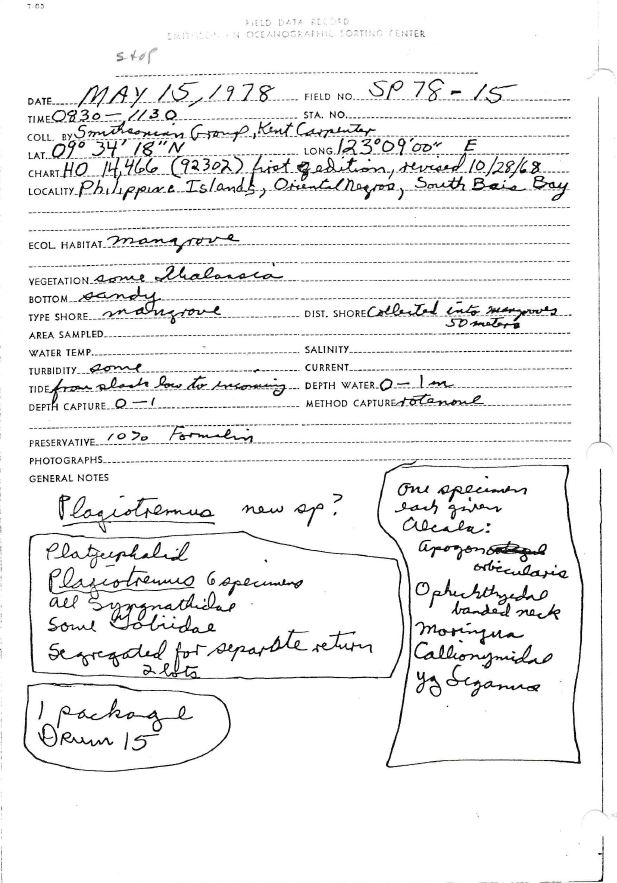 7-65
FIELD DATA RECORD
SMITHSONIAN OCEANOGRAPHIC SORTING CENTER
Stop
DATE MAY 15, 1978 FIELD NO. SP 78-15
TIME 0830-1130 STA. NO.
COLL. BY Smithsonian Group, Kent Carpenter
LAT. 09° 34' 18" N LONG. 123° 09' 00" E
CHART HO 14,466 (92302) first edition, revised 10/28/68
LOCALITY Philippine Islands, Oriental Negros, South Bais Bay
ECOL. HABITAT mangrove
VEGETATION some Thalassia
BOTTOM sandy
TYPE SHORE mangrove DIST. SHORE Collected into mangroves
50 meters
AREA SAMPLED
WATER TEMP. SALINITY
TURBIDITY some CURRENT
TIDE from slack low to incoming DEPTH WATER 0-1m
DEPTH CAPTURE 0-1 METHOD CAPTURE rotenone
PRESERVATIVE 10% Formalin
PHOTOGRAPHS
GENERAL NOTES
Plagiotremus new sp?
Platycephalid
Plagiotremus 6 specimens
all Syngnathidae
Some Gobiidae
Segregated for separate return
2 lots
1 package
Drum 15
One specimen
each given
Alcala:
Apogon
orbicularis
Ophichthyidae
banded neck
Moringua
Callionymidae
yg Siganus